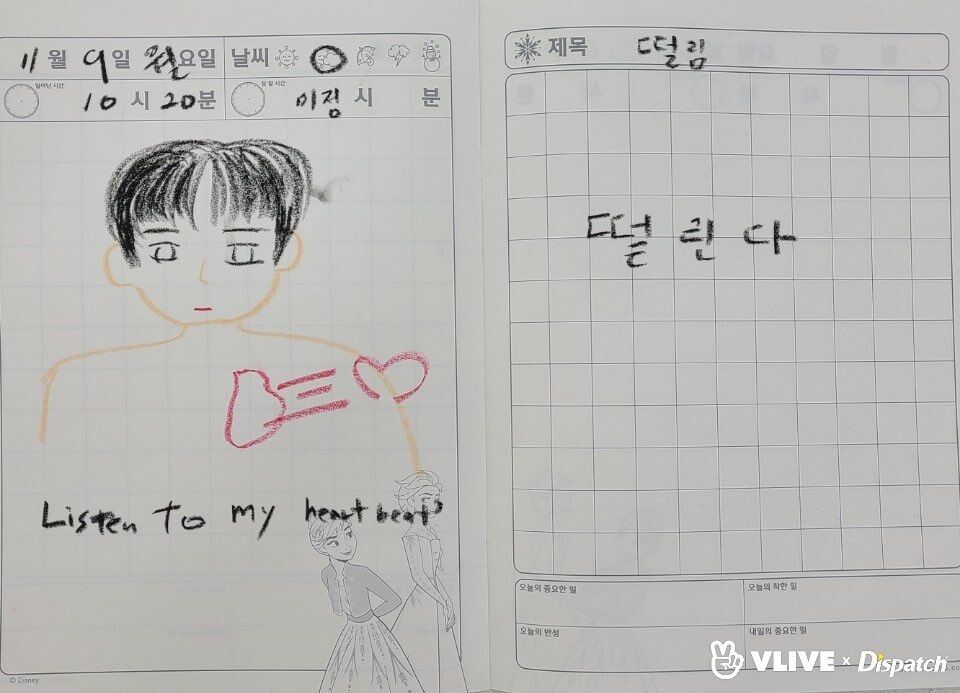 11월 9일 월요일 날씨
일어난 시간 10시 20분 잠 잘 시간 미정 시 분
Listen to my heart beat?
© Disney
제목 떨림
떨린다
오늘의 중요한 일 오늘의 착한 일
오늘의 반성 내일의 중요한 일
VLIVE x Dispatch